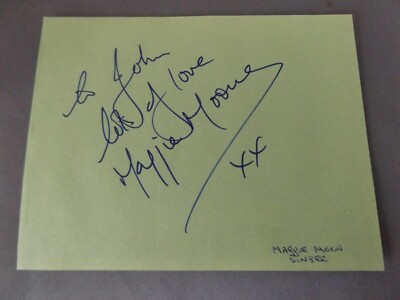 to John
lots of love
Maggie Moone
xx
MAGGIE MOON
SINGER